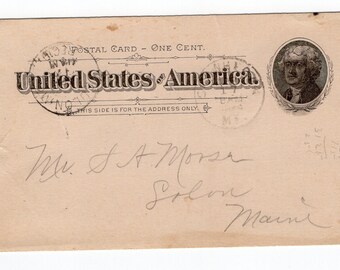 POSTAL CARD – ONE CENT.
United States of America.
THIS SIDE IS FOR THE ADDRESS ONLY.
Mr. S A Morse
Solon
Maine